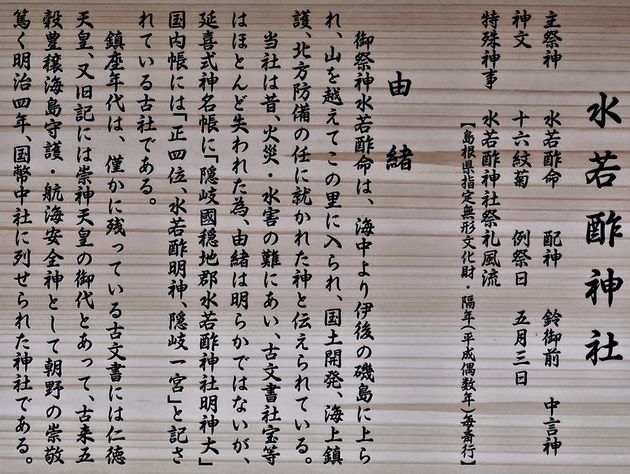 水若酢神社
主祭神　水若酢命　配神　鈴御前　中言神
神文　十六紋菊　例祭日　五月三日
特殊神事　水若酢神社祭礼風流
【島根県指定無形文化財・隔年（平成偶数年）毎斎行】
由緒
御祭神水若酢命は、海中より伊後の磯島に上ら
れ、山を越えてこの里に入られ、国土開発、海上鎮
護、北方防備の任に就かれた神と伝えられている。
当社は昔、火災・水害の難にあい、古文書社宝等
はほとんど失われた為、由緒は明らかではないが、
延喜式神名帳に「隠岐國穏地郡水若酢神社明神大」
国内帳には「正四位、水若酢明神、隠岐一宮」と記さ
れている古社である。
鎮座年代は、僅かに残っている古文書には仁徳
天皇、又旧記には崇神天皇の御代とあって、古来五
穀豊穣海島守護・航海安全神として朝野の崇敬
篤く明治四年、国幣中社に列せられた神社である。